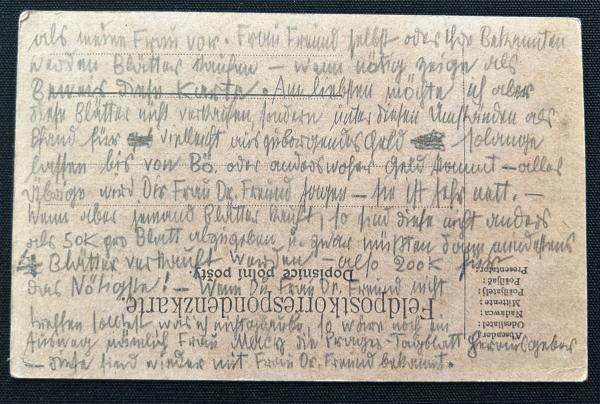 als meine Frau vor. Frau Freund selbst oder ihre Bekannten
werden Blätter kaufen – wenn nötig zeige als
Beweis diese Karte. Am liebsten möchte ich aber
diese Blätter nicht verkaufen sondern unter diesen Umständen als
Pfand für vielleicht ausgeborgendes Geld solange
lassen bis von Bö. oder anderswoher Geld kommt – alles
Übrige wird Dir Frau Dr. Freund sagen – sie ist sehr nett. –
Wenn aber jemand Blätter kauft, so sind diese nicht anders
als 50K pro Blatt abzugeben, u. zwar müßten dann mindestens
4 Blätter verkauft werden – also 200K für
das Nötigste! – Wenn Du Frau Dr. Freund nicht
treffen solltest was ich nicht glaube, so wäre noch ein
Ausweg nämlich Frau die Prager-Tagblatt Herausgeber
– diese sind wieder mit Frau Dr. Freund bekannt.
Dopisnice polní pošty.
Feldpostkorrespondenzkarte.
Absender:
Odesílatel:
Nadawca:
Mittente:
Pošiljatelj:
Pošiljač:
Presentator: